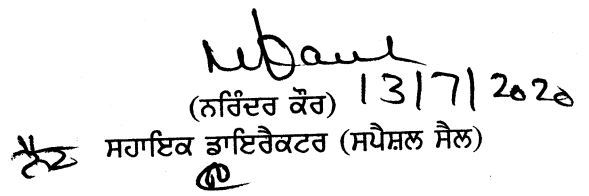 (ਨਰਿੰਦਰ ਕੌਰ) 13/7/2020
ਸਹਾਇਕ ਡਾਇਰੈਕਟਰ (ਸਪੈਸ਼ਲ ਸੈੱਲ)